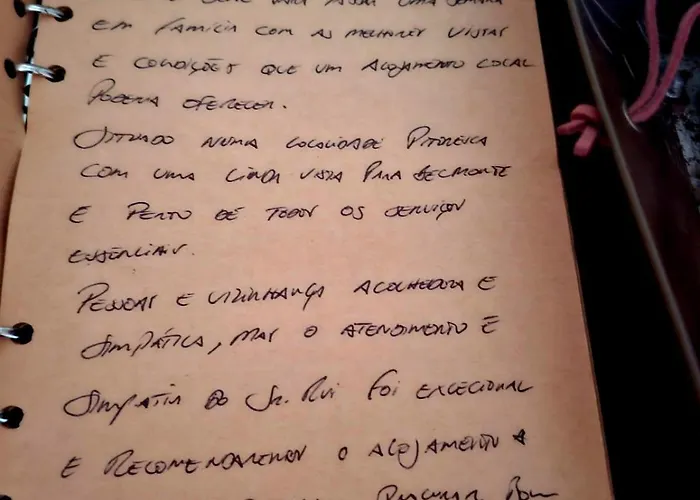 uma semana
em família com as melhores vistas
e condições que um alojamento local
poderia oferecer.
Situado numa localidade pitoresca
com uma linda vista para Belmonte
e perto de todos os serviços
essenciais.
Pessoas e vizinhança acolhedora e
simpática, mas o atendimento e
simpatia do Sr. Rui foi excecional
e recomendaremos o alojamento a
procurar